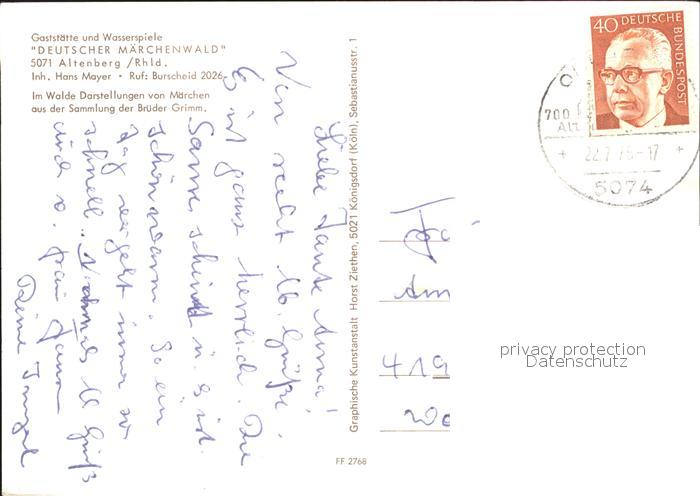 Gaststätte und Wasserspiele
"DEUTSCHER MÄRCHENWALD"
5071 Altenberg /Rhld.
Inh. Hans Mayer • Ruf: Burscheid 2026
Im Walde Darstellungen von Märchen
aus der Sammlung der Brüder Grimm.
Liebe Tante Anna!
Von recht lb. Grüße.
Es ist ganz herrlich. Die
Sonne scheint u. es ist
schön warm. So ein
Tag vergeht immer so
schnell. Nochmals lb Grüße
und v.
Deine
Graphische Kunstanstalt Horst Ziethen, 5021 Königsdorf (Köln), Sebastianusstr. 1
FF 2768
40 DEUTSCHE
BUNDESPOST
700
22.7.75-17
5074
An
419
privacy protection
Datenschutz